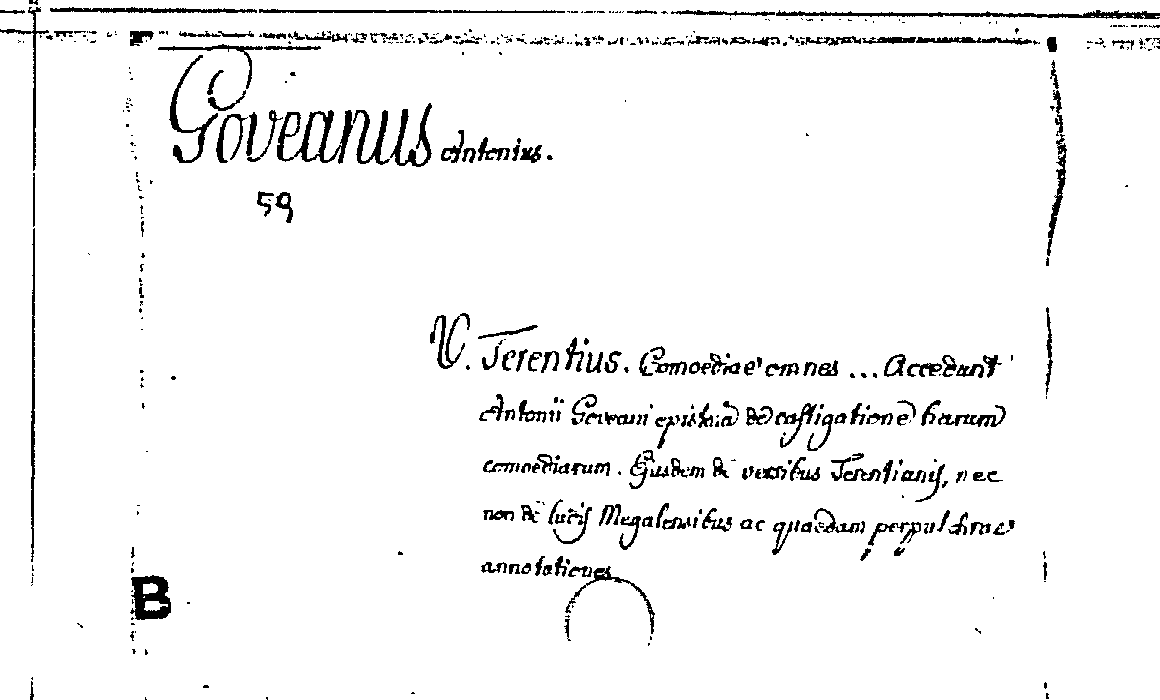 Goveanus Antonius.
59
V. Terentius. Comoediae omnes ... Accedunt
Antonii Goveani epistola de castigatione harum
comoediarum. Ejusdem de versibus Terentianis, nec
non de ludis Megalensibus ac quaedam perpulchrae
annotationes
B